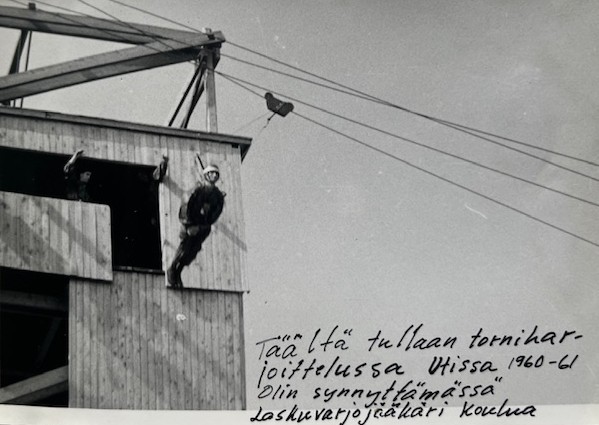 Täältä tullaan tornihar-
joittelussa Utissa 1960-61
Olin synnyttämässä
Laskuvarjojääkäri Koulua